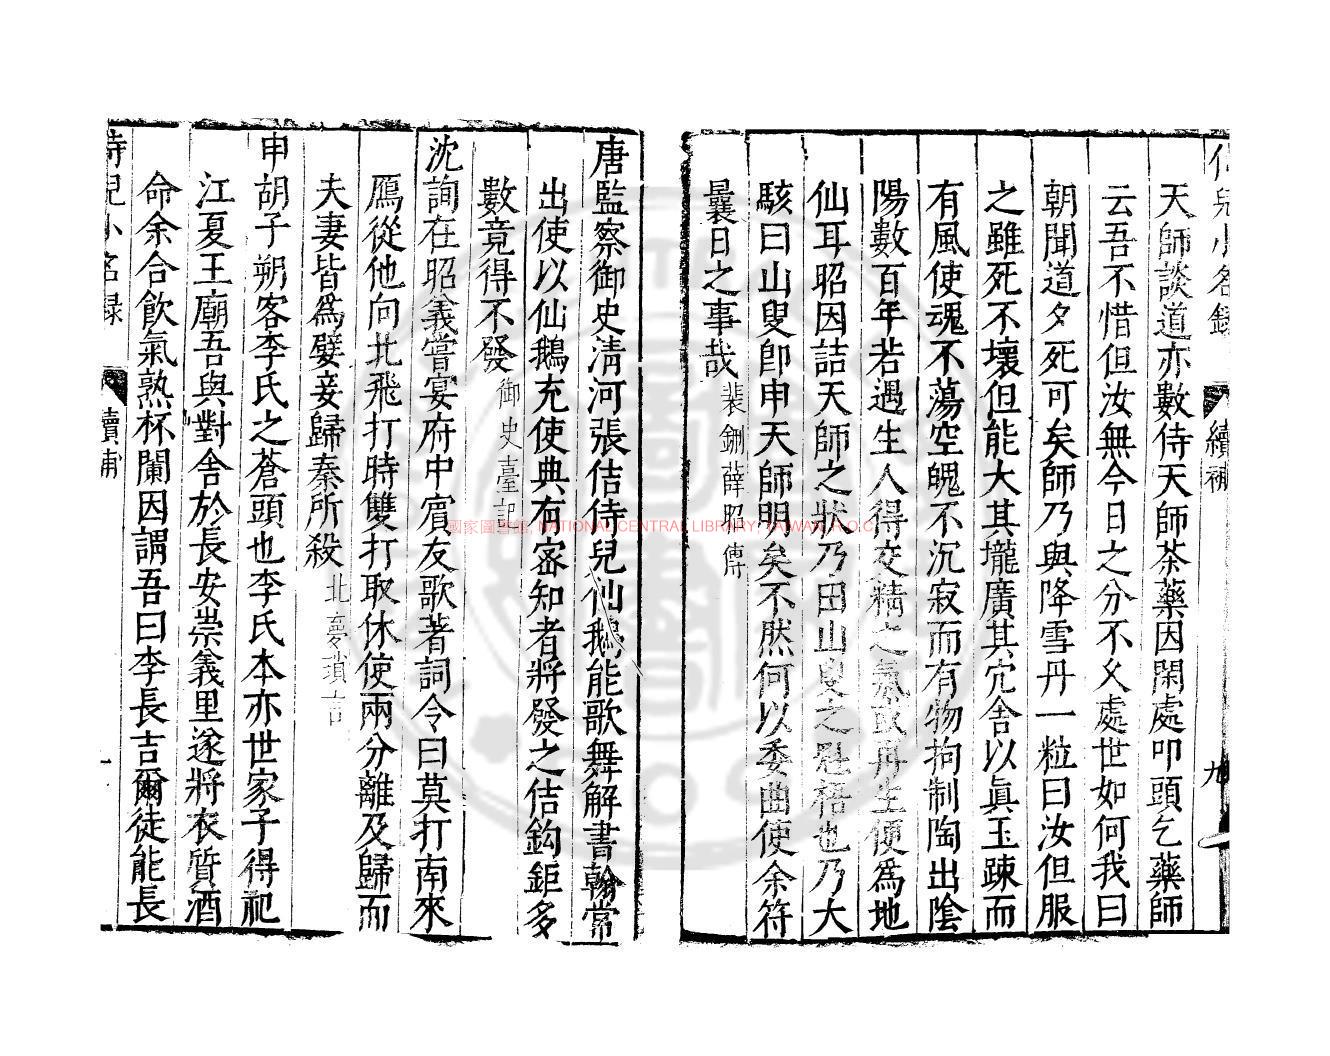 侍兒小名錄 續補 九
天師談道亦數侍天師茶藥因閑處叩頭乞藥師
云吾不惜但汝無今日之分不久處世如何我曰
朝聞道夕死可矣師乃與降雪丹一粒曰汝但服
之雖死不壞但能大其壠廣其穴舍以眞玉疎而
有風使魂不蕩空魄不沉寂而有物拘制陶出陰
陽數百年若遇生人得交精之氣或再生便爲地
仙耳昭因詰天師之狀乃田山叟之魁梧也乃大
駭曰山叟卽申天師明矣不然何以委曲使余符
曩日之事哉 裴鉶薛昭傳
唐監察御史清河張佶侍兒仙鵝能歌舞解書翰常
出使以仙鵝充使典有密知者將發之佶鈎鉅多
數竟得不發 御史臺記
沈詢在昭義嘗宴府中賓友歌著詞令曰莫打南來
鴈從他向北飛打時雙打取休使兩分離及歸而
夫妻皆爲嬖妾歸秦所殺 北夢瑣言
申胡子朔客李氏之蒼頭也李氏本亦世家子得祀
江夏王廟吾與對舍於長安崇義里遂將衣質酒
命余合飲氣熟杯闌因謂吾曰李長吉爾徒能長
侍兒小名録 續補
國家圖書館, NATIONAL CENTRAL LIBRARY, TAIWAN, R.O.C